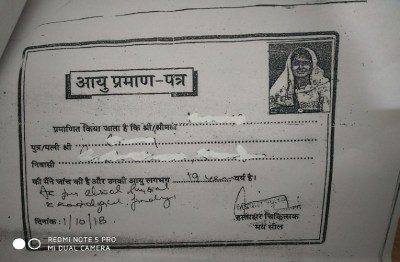 आयु प्रमाण-पत्र
प्रमाणित किया जाता है कि श्री/श्रीमती
पुत्र/पत्नी श्री
निवासी
की मैंने जांच की है और उनकी आयु लगभग 19 वर्ष है।
As per clinical
दिनांक: 1/10/18.
हस्ताक्षर चिकित्सक
मय सील
REDMI NOTE 5 PRO
MI DUAL CAMERA